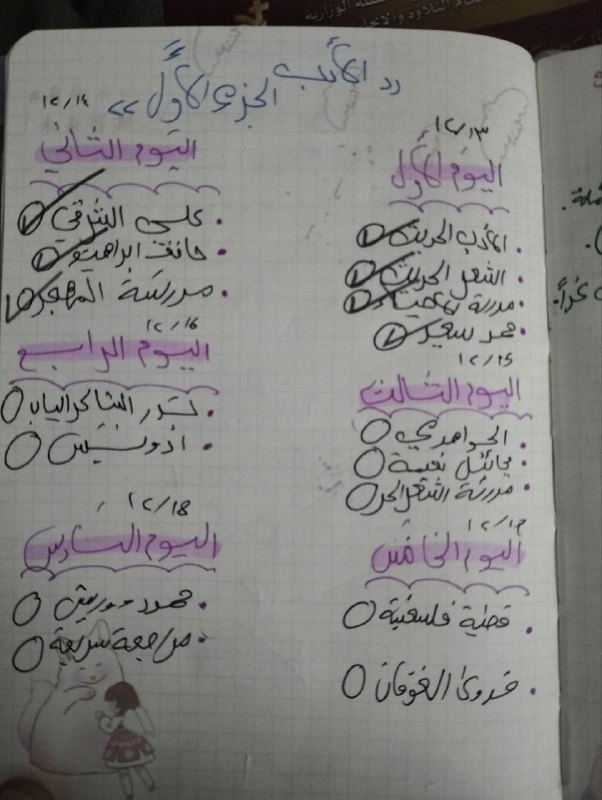 الأدب الجزء الأول <<
١٢/١٣
اليوم الأول
. الأدب الحديث
. الشعر الحديث
. محمد سعيد
١٢/١٤
اليوم الثاني
. علي الشرقي
. حافظ ابراهيم
. مدرسة المهجر
١٢/١٥
اليوم الثالث
. الجواهري
. ميخائيل نعيمة
. مدرسة الشعر الحر
١٢/١٦
اليوم الرابع
. بدر شاكر السياب
. أدونيس
اليوم الخامس
. قضية فلسطينية
. فدوى طوقان
١٢/١٨
اليوم السادس
. محمود درويش
. مراجعة سريعة